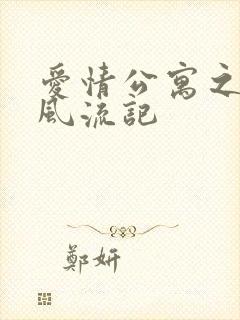 愛情公寓之
風流記
鄭妍